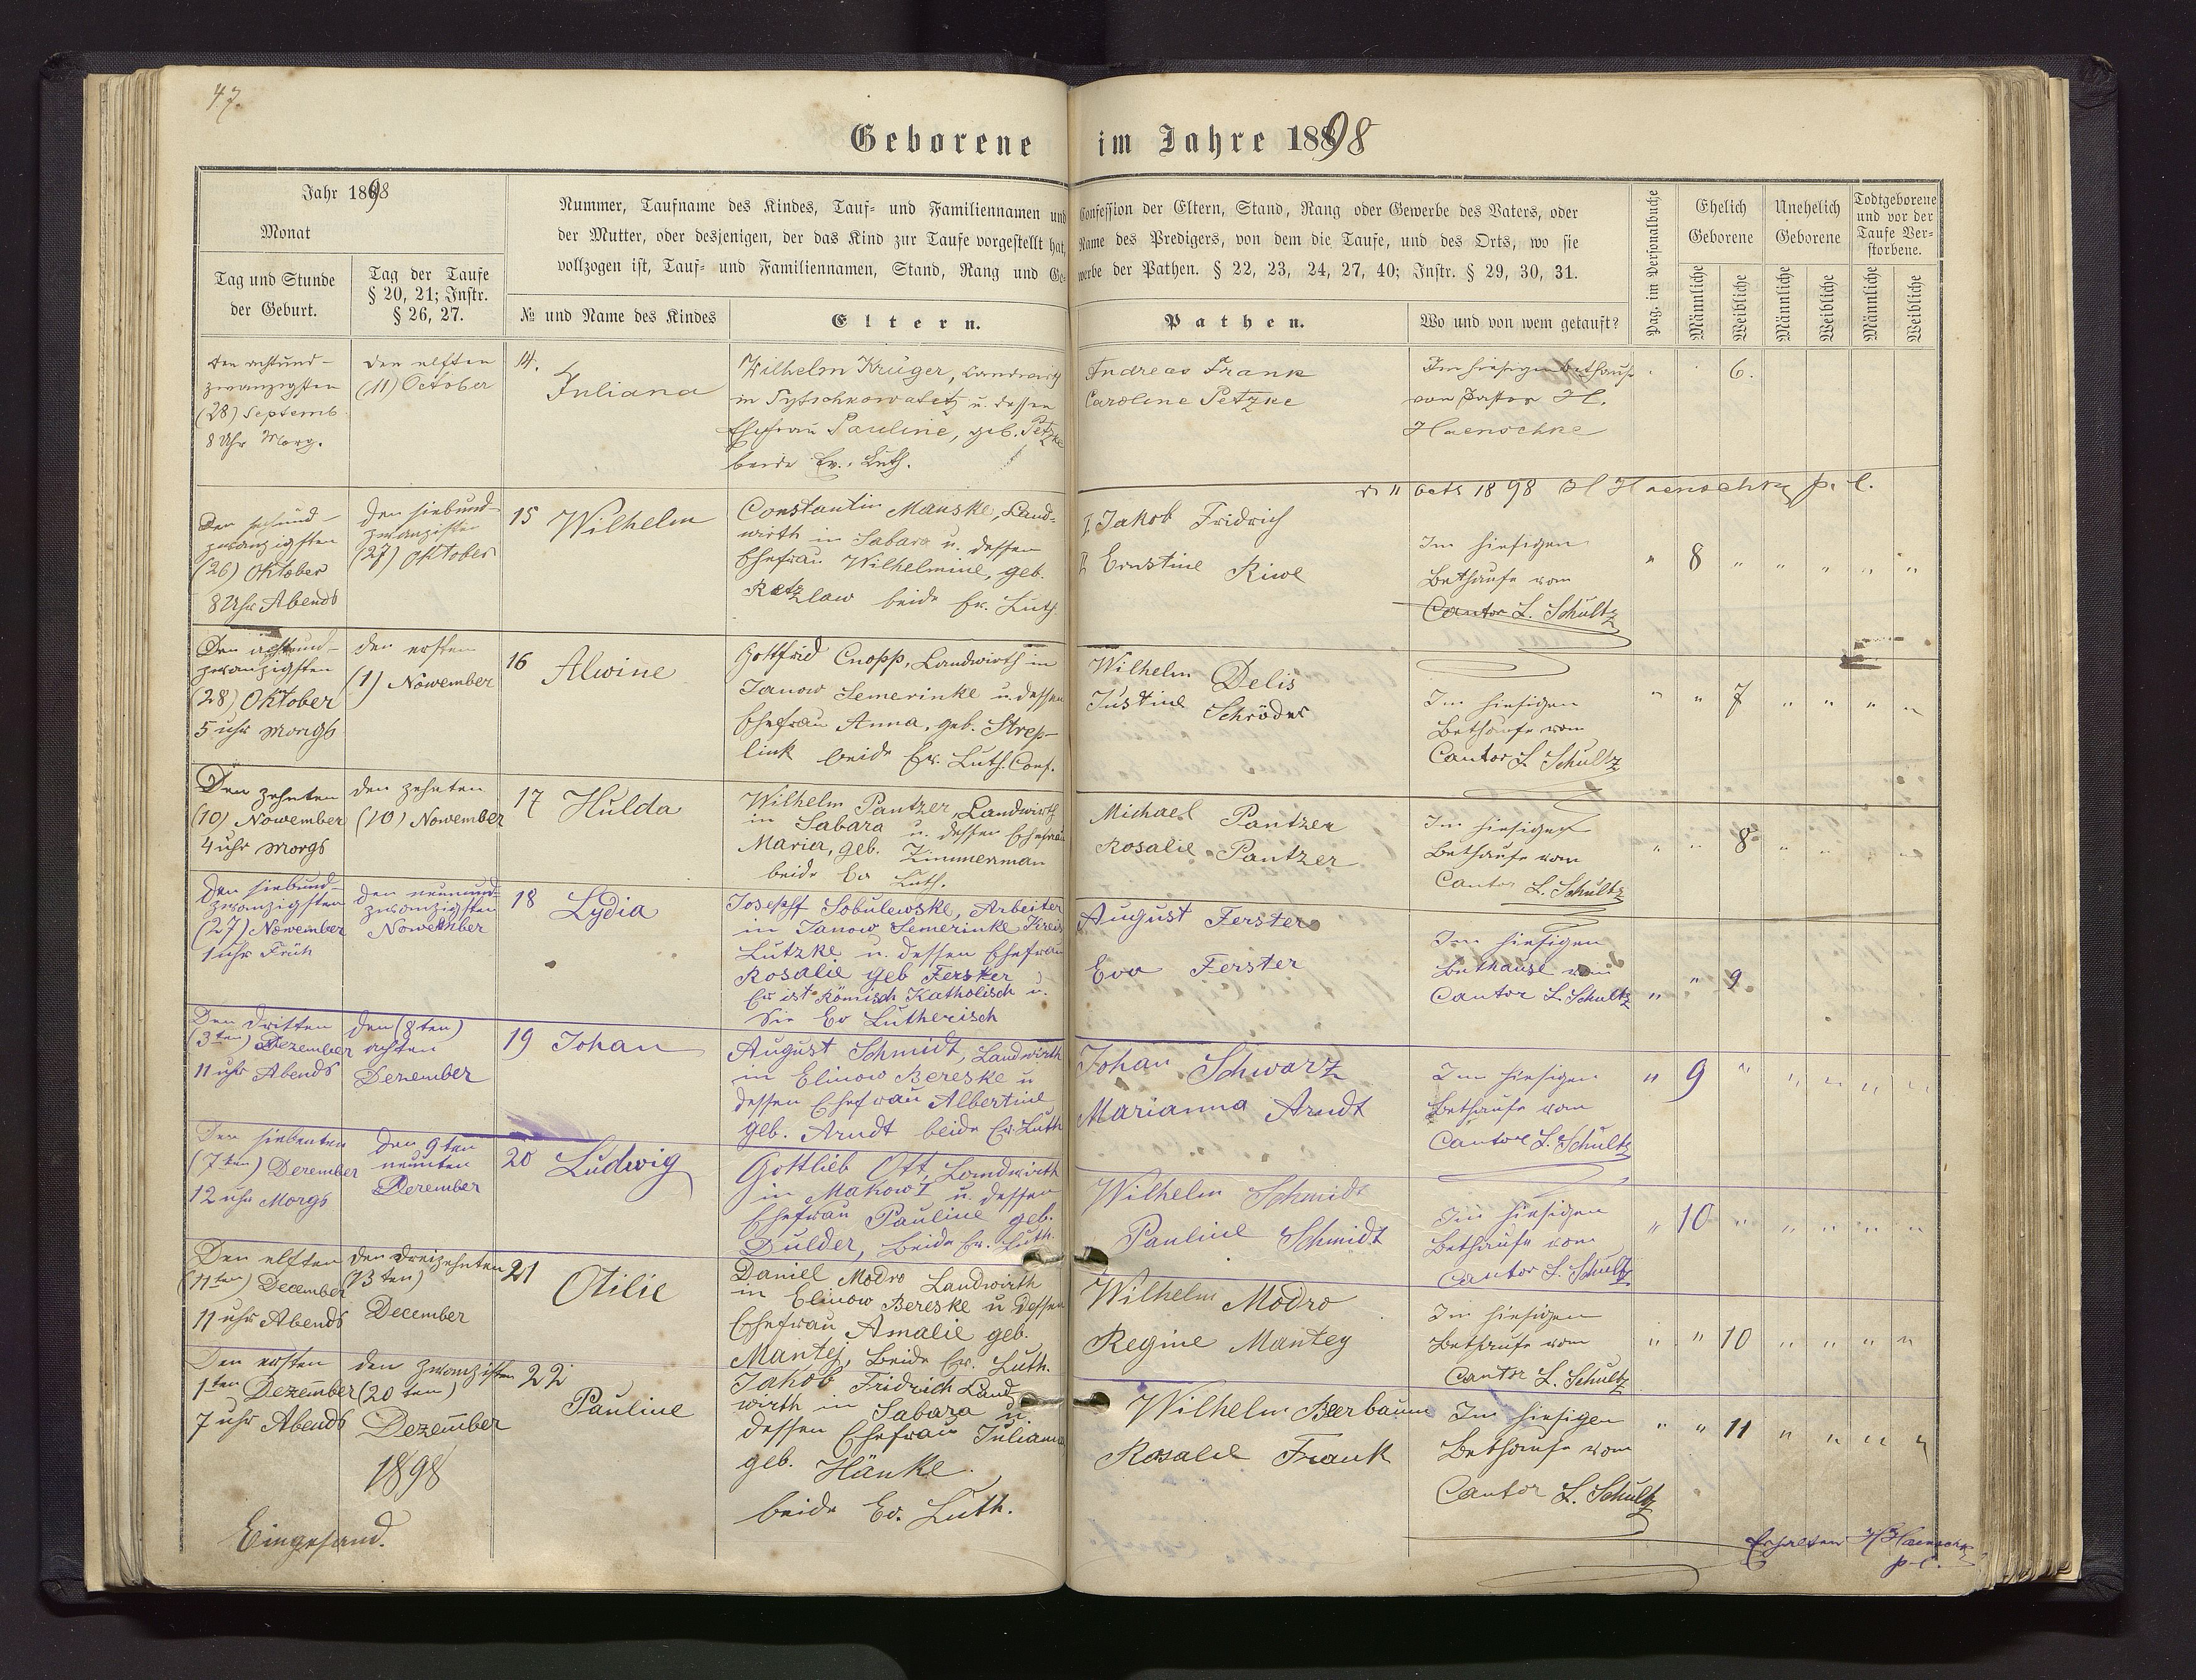 47.
Geborene im Jahre 1898
Jahr 1898
Monat
Tag und Stunde
der Geburt.
Tag der Taufe
§ 20, 21; Instr.
§ 26, 27.
Nummer, Taufname des Kindes, Tauf= und Familiennamen und Confession der Eltern, Stand, Rang oder Gewerbe des Vaters, oder
der Mutter, oder desjenigen, der das Kind zur Taufe vorgestellt hat, Name des Predigers, von dem die Taufe, und des Orts, wo sie
vollzogen ist, Tauf= und Familiennamen, Stand, Rang und Gewerbe der Pathen. § 22, 23, 24, 27, 40; Instr. § 29, 30, 31.
№ und Name des Kindes
Eltern.
Pathen.
Wo und von wem getauft?
Pag. im Personalbuche
Ehelich
Geborene
Unehelich
Geborene
Todtgeborene
und vor der
Taufe Ver-
storbene.
Männliche
Weibliche
Männliche
Weibliche
Männliche
Weibliche
den achtund-
zwanzigsten
(28) Septemb.
8 Uhr Morg.
den elften
(11) October
14.
Juliana
Wilhelm Krüger, Landwirth
in u. dessen
Ehefrau Pauline, geb. Petzke
beide Ev. Luth.
Andreas Frank
Caroline Petzke
Im hiesigen Bethause
von Pastor H.
Haenschke
6.
d. 11 Octb 1898 H Haenschke p. l.
Den sechsund-
zwanzigsten
(26) Oktober
8 Uhr Abends
den siebund-
zwanzigsten
(27) Oktober
15 Wilhelm
Constantin Manske, Land-
wirth in Sabara u. dessen
Ehefrau Wilhelmine, geb.
Ratzlaw beide Ev. Luth.
1. Jakob Fridrich
2 Ernstine Riwe
Im hiesigen
Bethause vom
Cantor L. Schultz
" 8 " " " " "
Den achtund-
zwanzigsten
(28) Oktober
5 uhr Morgs
den ersten
(1) Nowember
16 Alwine
Gottfrid Cnopp, Landwirth in
Janow Semerinke u. dessen
Ehefrau Anna, geb. Strep-
link beide Ev. Luth. Conf.
Wilhelm Delis
Justine Schröder
Im hiesigen
Bethause vom
Cantor L Schultz
" " 7 " " " "
Den zehnten
(10) Nowember
4 uhr Morgs
den zehnten
(10) Nowember
17 Hulda
Wilhelm Pantzer, Landwirth
in Sabara u. dessen Ehefrau
Maria, geb. Zimmerman
beide Ev Luth.
Michael Pantzer
Rosalie Pantzer
Im hiesigen
Bethause vom
Cantor L. Schultz
" " 8 " " " "
Den siebund-
zwanzigsten
(27) Nowember
1 uhr Früh
den neunund-
zwanzigsten
Nowember
18 Lydia
Joseph Sobulewske, Arbeiter
in Janow Semerinke Kreis
Lutzke u. dessen Ehefrau
Rosalie geb Ferster
Er ist Römisch Katholisch u.
Sie Ev Lutherisch
August Ferster
Eva Ferster
Im hiesigen
Bethause vom
Cantor L. Schultz
" " 9.
Den Dritten
(3ten) Dezember
11 uhr Abends
den (8ten)
achten
Dezember
19 Johan
August Schmidt, Landwirth
in Elinow Bereske u
dessen Ehefrau Albertine
geb. Arndt beide Ev. Luth
Johan Schwarz
Marianna Arndt
Im hiesigen
Bethause vom
Cantor L. Schultz
" 9 " " " " "
Den siebenten
(7ten) Dezember
12 uhr Morgs
den 9ten
neunten
Dezember
20 Ludwig
Gottlieb Ott, Landwirth
in Makow u. dessen
Ehefrau Pauline geb.
Dulder, beide Ev. Luth.
Wilhelm Schmidt
Pauline Schmidt
Im hiesigen
Bethause vom
Cantor L. Schultz
" 10 " " " " "
Den elften
(11ten) December
11 uhr Abends
den dreizehnten
(13ten)
December
21
Otilie
Daniel Modro Landwirth
in Elinow Bereske u dessen
Ehefrau Amalie geb.
Mantej, beide Ev. Luth.
Wilhelm Modro
Regine Mantey
Im hiesigen
Bethause vom
Cantor L. Schultz
" " 10 " " " "
Den ersten
1ten Dezember
7 uhr Abends
den zwanzisten
(20ten)
Dezember
1898
22
Pauline
Jakob Fridrich Land
wirth in Sabara u.
dessen Ehefrau Juliana
geb. Hänke.
beide Ev. Luth.
Wilhelm Beerbaum
Rosalie Frank
Im hiesigen
Bethause vom
Cantor L. Schultz
" " 11 " " " "
Eingesand.
Erhalten H Haenschke
p. l.